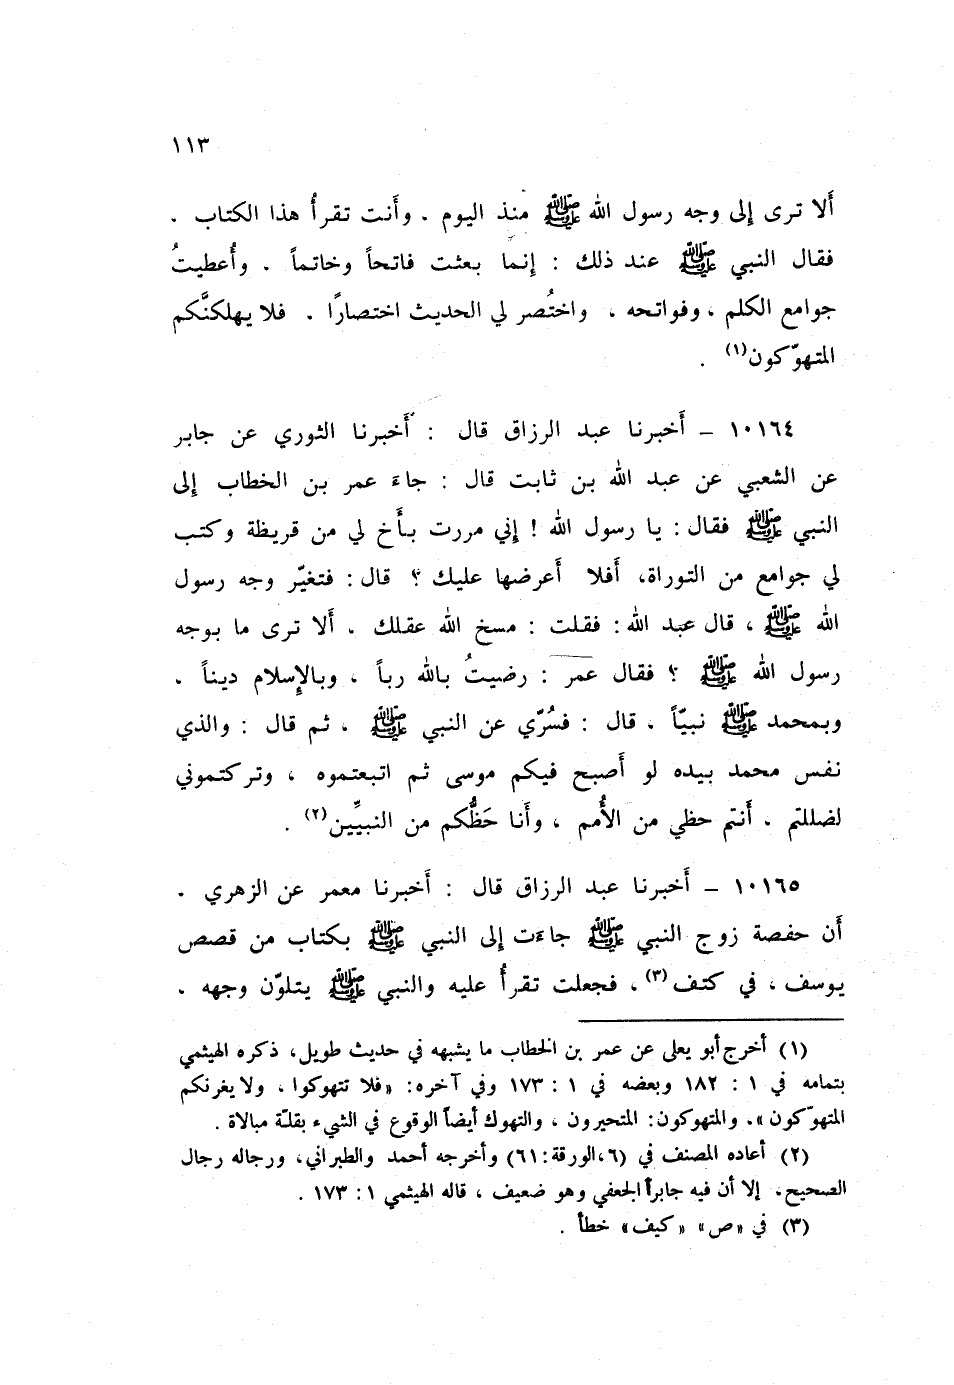 ١١٣
ألا ترى إلى وجه رسول الله ﷺ منذ اليوم . وأنت تقرأُ هذا الكتاب .
فقال النبي ﷺ عند ذلك : إنما بعثت فاتحاً وخاتماً . وأُعطيتُ
جوامع الكلم ، وفواتحه ، واختُصر لي الحديث اختصارًا . فلا يهلكنَّكم
المتهوّكون(١) .
١٠١٦٤ – أَخبرنا عبد الرزاق قال : أَخبرنا الثوري عن جابر
عن الشعبي عن عبد الله بن ثابت قال : جاءَ عمر بن الخطاب إلى
النبي ﷺ فقال : يا رسول الله ! إني مررت بأَخ لي من قريظة وكتب
لي جوامع من التوراة، أَفلا أَعرضها عليك ؟ قال : فتغيّر وجه رسول
الله ﷺ ، قال عبد الله : فقلت : مسخ الله عقلك . أَلا ترى ما بوجه
رسول الله ﷺ ؟ فقال عمر : رضيتُ بالله رباً ، وبالإسلام ديناً .
وبمحمد ﷺ نبيّاً . قال : فسُرّي عن النبي ﷺ . ثم قال : والذي
نفس محمد بيده لو أَصبح فيكم موسى ثم اتبعتموه ، وتركتموني
لضللتم . أَنتم حظي من الأُمم ، وأَنا حَظُّكم من النبيِّين(٢) .
١٠١٦٥ – أَخبرنا عبد الرزاق قال : أَخبرنا معمر عن الزهري .
أَن حفصة زوج النبي ﷺ جاءَت إلى النبي ﷺ بكتاب من قصص
يوسف ، في كتف(٣) ، فجعلت تقرأُ عليه والنبي ﷺ يتلوّن وجهه .
(١) أخرج أبو يعلى عن عمر بن الخطاب ما يشبهه في حديث طويل، ذكره الهيثمي
بتمامه في ١ : ١٨٢ وبعضه في ١ : ١٧٣ وفي آخره: «فلا تتهوكوا ، ولا يغرنكم
المتهوّكون». والمتهوكون: المتحيرون ، والتهوك أيضاً الوقوع في الشيء بقلة مبالاة .
(٢) أعاده المصنف في (٦،الورقة:٦١) وأخرجه أحمد والطبراني، ورجاله رجال
الصحيح، إلا أن فيه جابراً الجعفي وهو ضعيف ، قاله الهيثمي ١ : ١٧٣ .
(٣) في «ص» «كيف» خطأ .